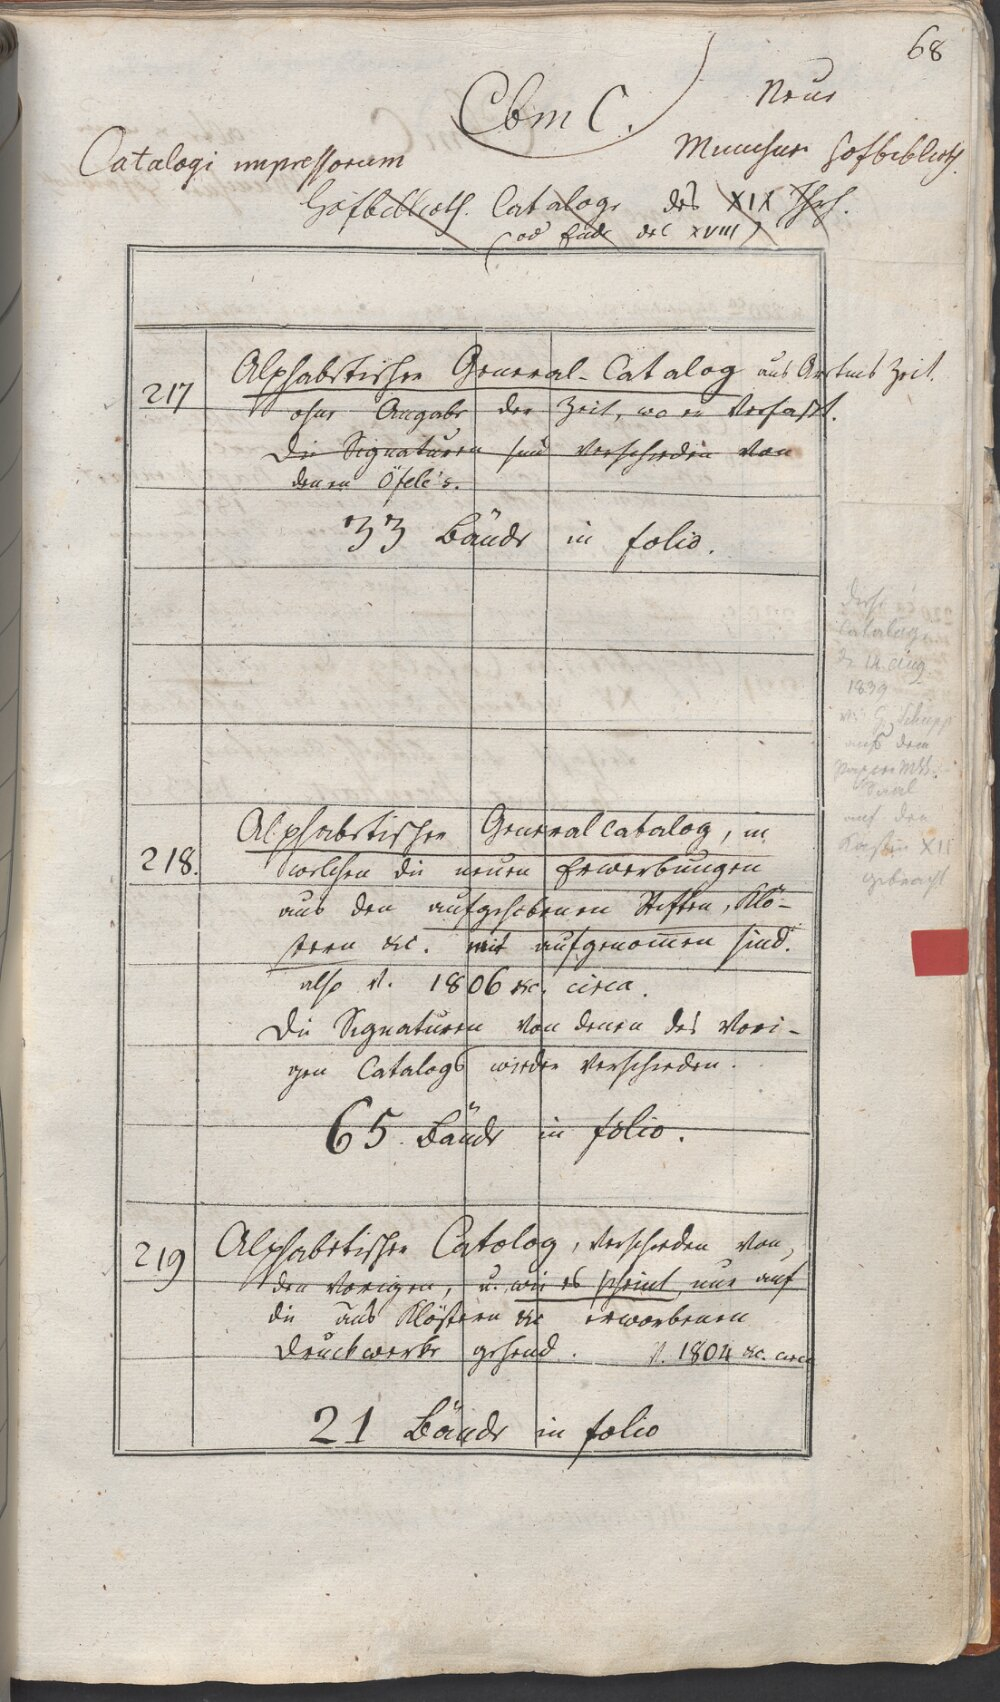 68
Cbm C.
Neue
Catalogi impressorum
Münchner Hofbiblioth.
Hofbiblioth. Cataloge des XIX Jhrh.
(od Ende des XVIII)
217
Alphabetischer General-Catalog aus Aretins Zeit.
ohne Angabe der Zeit, wo er verfaßt.
Die Signaturen sind verschieden von
denen Öfele's.
33 Bände in folio.
Dieser
Catalog
d. 14. Aug.
1839
v. H. Schupp
aus dem
Papier Mss.
Saal
auf den
Kasten XII
gebracht
218.
Alphabetischer Generalcatalog, in
welchen die neuen Erwerbungen
aus den aufgehobenen Stiften, Klö-
stern &c. mit aufgenommen sind.
also v. 1806 &c. circa.
Die Signaturen von denen des vori-
gen Catalogs wieder verschieden.
65 Bände in folio.
219
Alphabetischer Catolog, verschieden von
den vorigen, u. wie es scheint, nur auf
die aus Klöstern &c erworbenen
Druckwerke gehend. v. 1804 &c. circa
21 Bände in folio